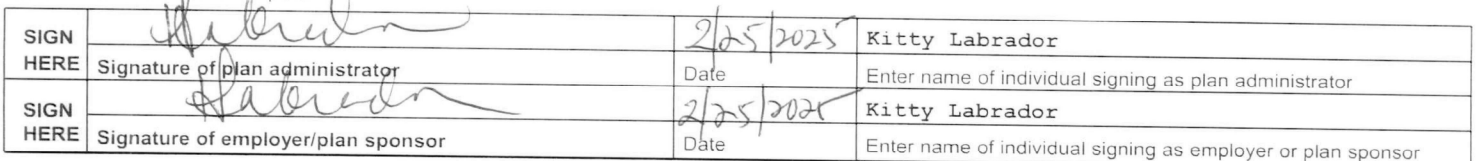 SIGN HERE
KLabrador 2/25/2025 Kitty Labrador
Signature of plan administrator Date Enter name of individual signing as plan administrator
SIGN HERE
KLabrador 2/25/2025 Kitty Labrador
Signature of employer/plan sponsor Date Enter name of individual signing as employer or plan sponsor